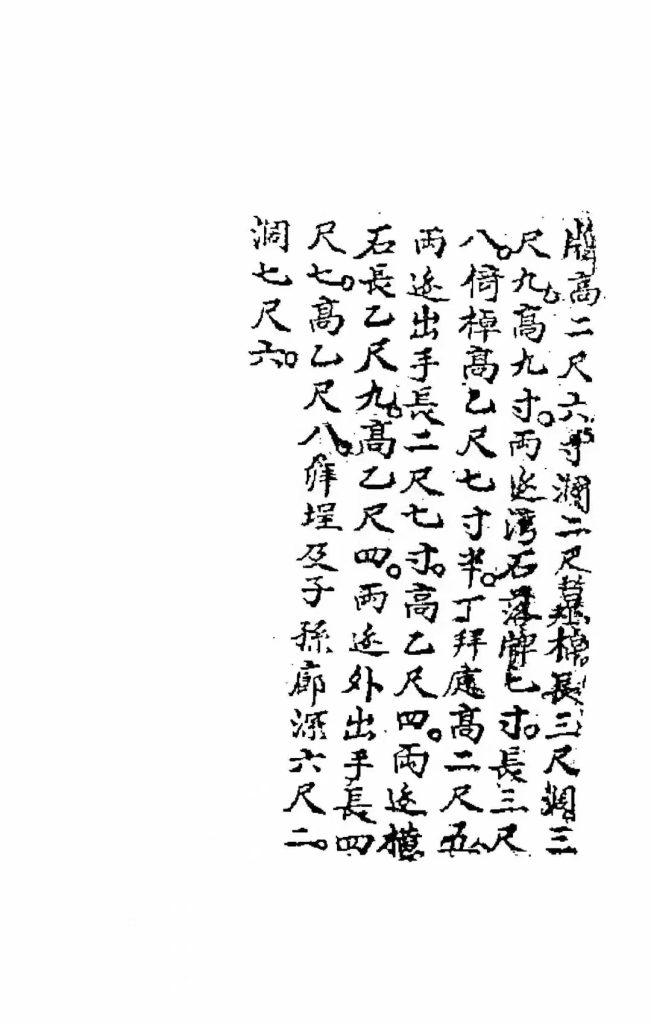 牌高二尺六寸濶二尺墓棹長三尺濶三
尺九。高九寸。兩邊湾石落牌七寸。長三尺
八。倚棹高乙尺七寸半。丁拜處高二尺五
兩邊出手長二尺七寸。高乙尺四。兩邊
石長乙尺九。高乙尺四。兩邊外出手長四
尺七。高乙尺八。埕及子孫廊深六尺二。
濶七尺六。